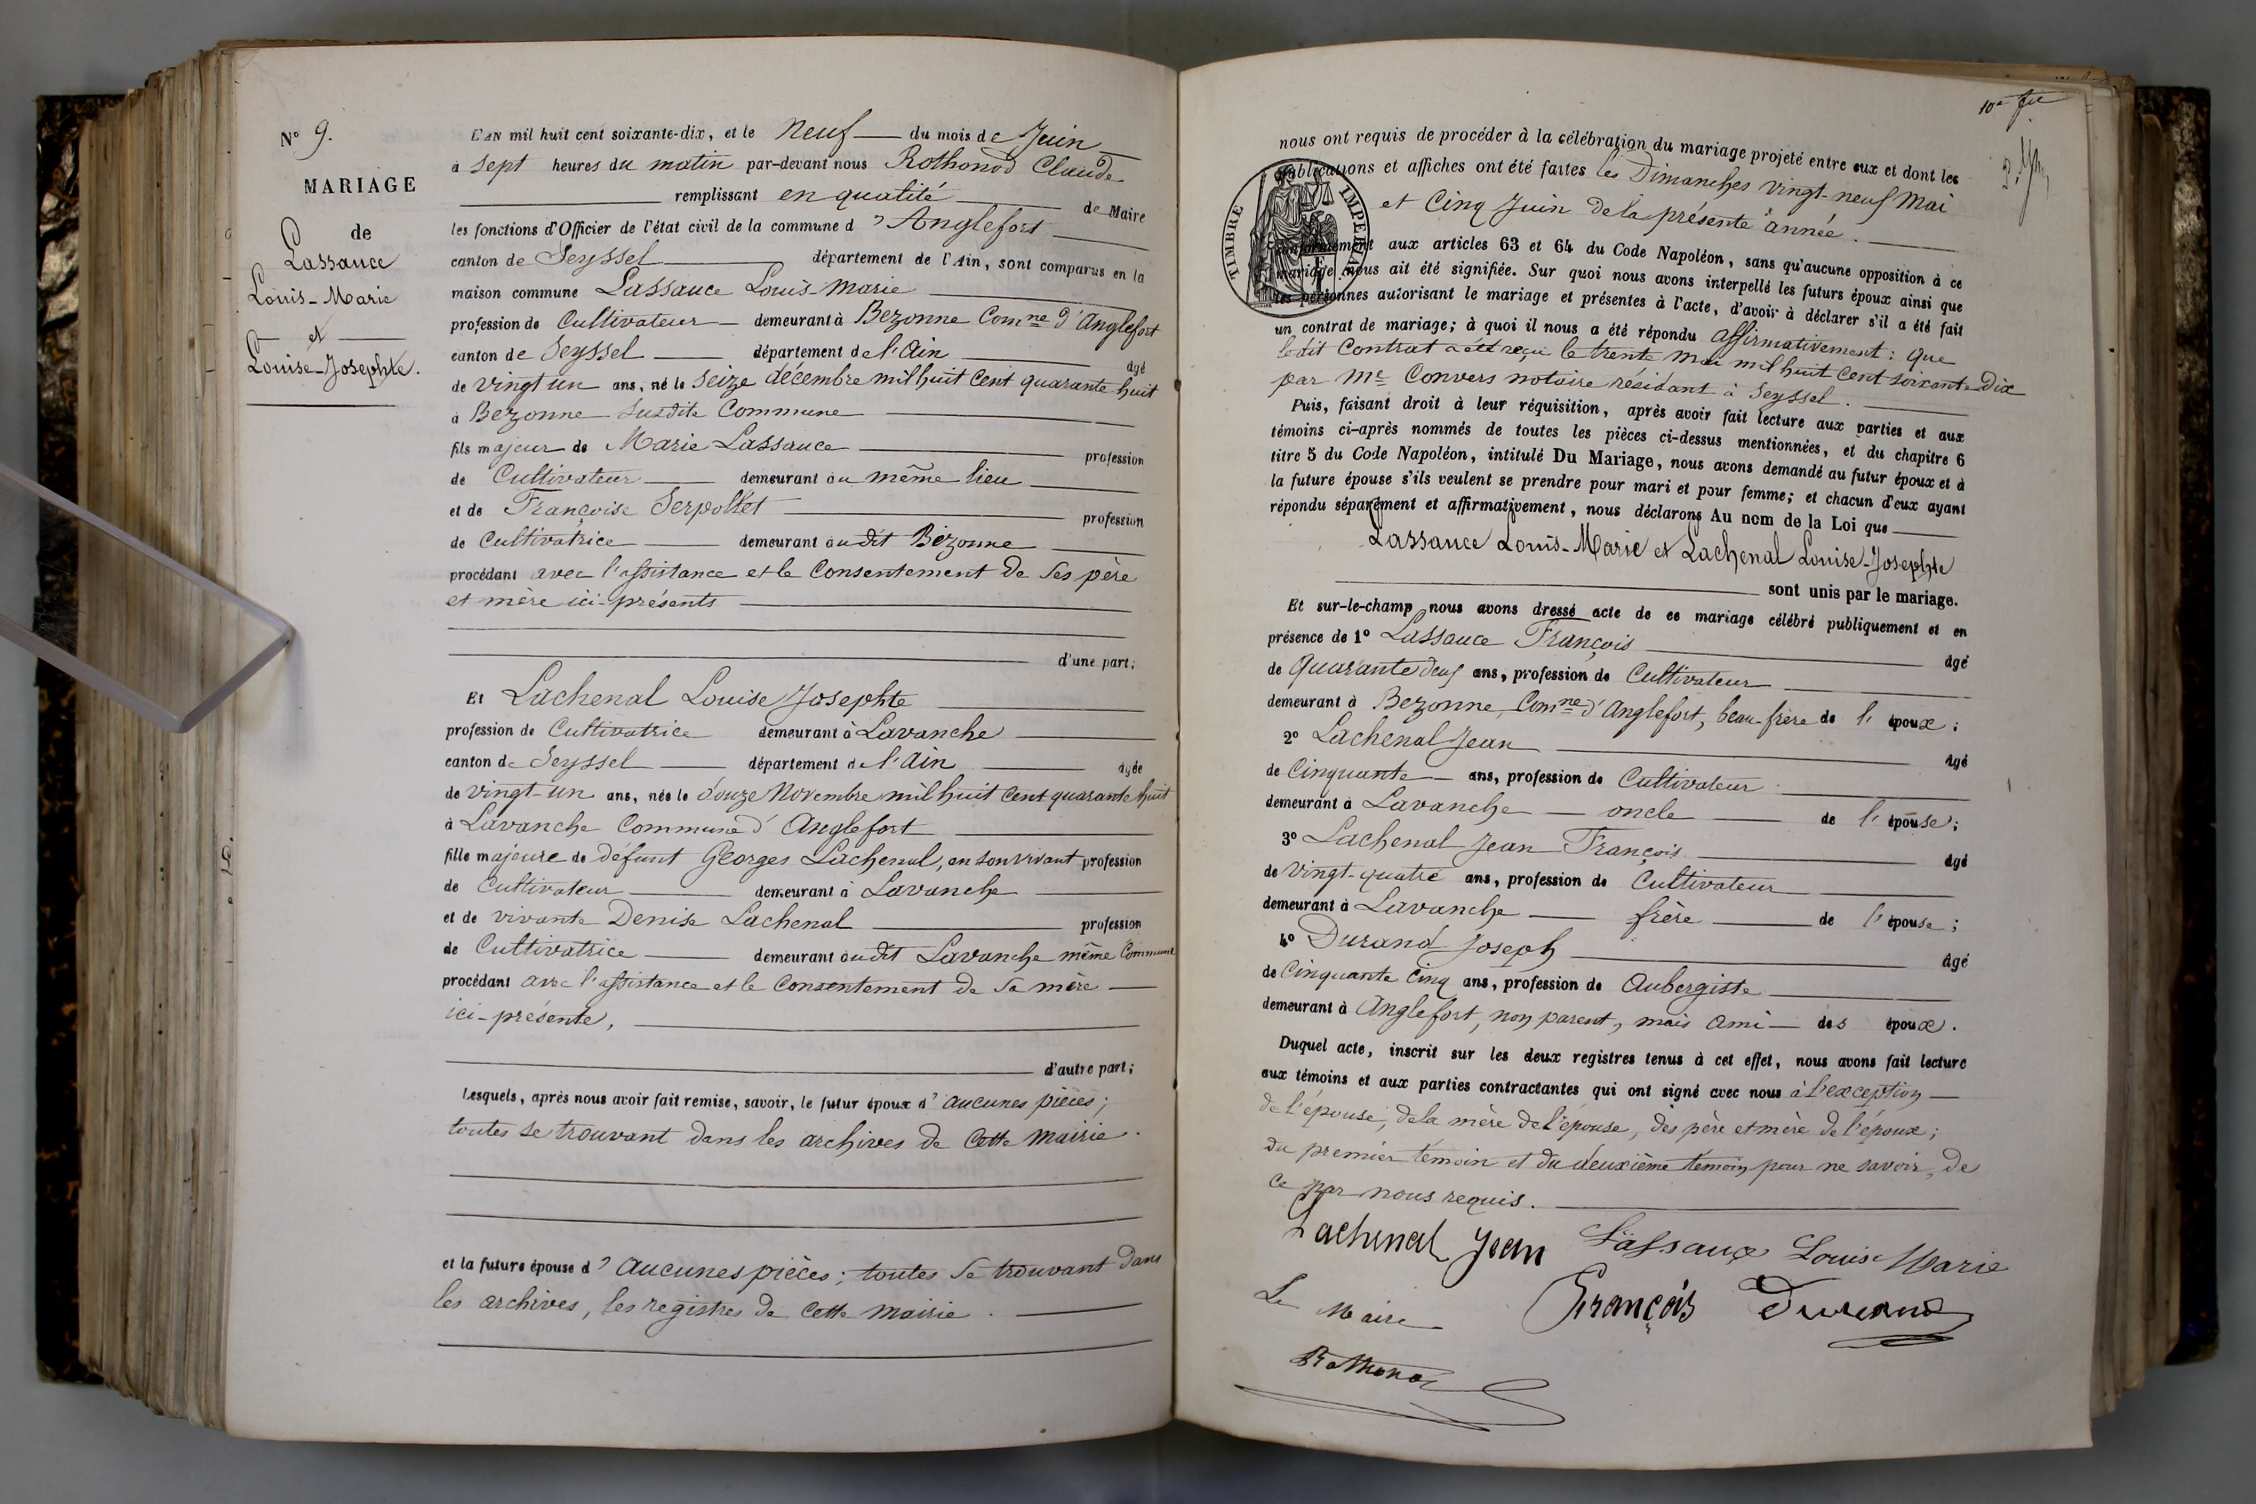 N° 9.
MARIAGE
de
Lassauce
Louis-Marie
et
Louise-Josephte.
L'AN mil huit cent soixante-dix, et le neuf du mois de Juin
à sept heures du matin par-devant nous Rothonod Claude
remplissant en qualité de Maire
les fonctions d'Officier de l'état civil de la commune d'Anglefort
canton de Seyssel département de l'Ain, sont comparus en la
maison commune Lassauce Louis-Marie
profession de Cultivateur demeurant à Bezonne Comne d'Anglefort
canton de Seyssel département de l'Ain âgé
de vingt un ans, né le seize décembre mil huit cent quarante huit
à Bezonne susdite Commune
fils majeur de Marie Lassauce profession
de Cultivateur demeurant au même lieu
et de Françoise Serpollet profession
de Cultivatrice demeurant audit Bezonne
procédant avec l'assistance et le Consentement de ses père
et mère ici-présents
d'une part;
Et Lachenal Louise Josephte
profession de Cultivatrice demeurant à Lavanche
canton de Seyssel département de l'Ain âgée
de vingt-un ans, née le douze Novembre mil huit cent quarante huit
à Lavanche Commune d'Anglefort
fille majeure de défunt Georges Lachenal, en son vivant profession
de Cultivateur demeurant à Lavanche
et de vivante Denise Lachenal profession
de Cultivatrice demeurant audit Lavanche même Commune
procédant avec l'assistance et le Consentement de sa mère
ici-présente,
d'autre part;
Lesquels, après nous avoir fait remise, savoir, le futur époux d'aucunes pièces;
toutes se trouvant dans les archives de cette Mairie.
et la future épouse d'aucunes pièces; toutes se trouvant dans
les archives, les registres de cette Mairie.
nous ont requis de procéder à la célébration du mariage projeté entre eux et dont les
publications et affiches ont été faites les Dimanches vingt-neuf Mai
et Cinq Juin de la présente année.
TIMBRE IMPERIAL
conformément aux articles 63 et 64 du Code Napoléon, sans qu'aucune opposition à ce
mariage nous ait été signifiée. Sur quoi nous avons interpellé les futurs époux ainsi que
les personnes autorisant le mariage et présentes à l'acte, d'avoir à déclarer s'il a été fait
un contrat de mariage; à quoi il nous a été répondu affirmativement: que
le dit Contrat a été reçu le trente Mai mil huit cent soixante Dix
par Me Convers notaire résidant à Seyssel.
Puis, faisant droit à leur réquisition, après avoir fait lecture aux parties et aux
témoins ci-après nommés de toutes les pièces ci-dessus mentionnées, et du chapitre 6
titre 5 du Code Napoléon, intitulé Du Mariage, nous avons demandé au futur époux et à
la future épouse s'ils veulent se prendre pour mari et pour femme; et chacun d'eux ayant
répondu séparément et affirmativement, nous déclarons Au nom de la Loi que
Lassauce Louis-Marie et Lachenal Louise-Josephte
sont unis par le mariage.
Et sur-le-champ nous avons dressé acte de ce mariage célébré publiquement et en
présence de 1° Lassauce François âgé
de quarante deux ans, profession de Cultivateur
demeurant à Bezonne, Comne d'Anglefort, beau-frère de l'époux;
2° Lachenal Jean âgé
de Cinquante ans, profession de Cultivateur
demeurant à Lavanche oncle de l'épouse;
3° Lachenal Jean François âgé
de vingt-quatre ans, profession de Cultivateur
demeurant à Lavanche frère de l'épouse;
4° Durand Joseph âgé
de Cinquante Cinq ans, profession de Aubergiste
demeurant à Anglefort, non parent, mais ami des époux.
Duquel acte, inscrit sur les deux registres tenus à cet effet, nous avons fait lecture
aux témoins et aux parties contractantes qui ont signé avec nous à l'exception
de l'épouse; de la mère de l'épouse, des père et mère de l'époux;
du premier témoin et du deuxième témoin pour ne savoir, de
ce par nous requis.
Lachenal Jean Lassauce Louis Marie
François Durand
Le Maire
Rothonod